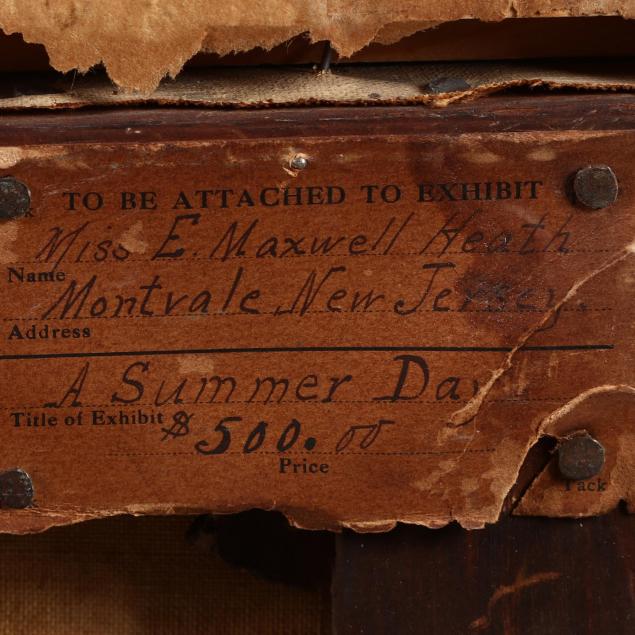 TO BE ATTACHED TO EXHIBIT
Miss E. Maxwell Heath
Name
Montvale, New Jersey.
Address
A Summer Day
Title of Exhibit
$500.00
Price
Tack